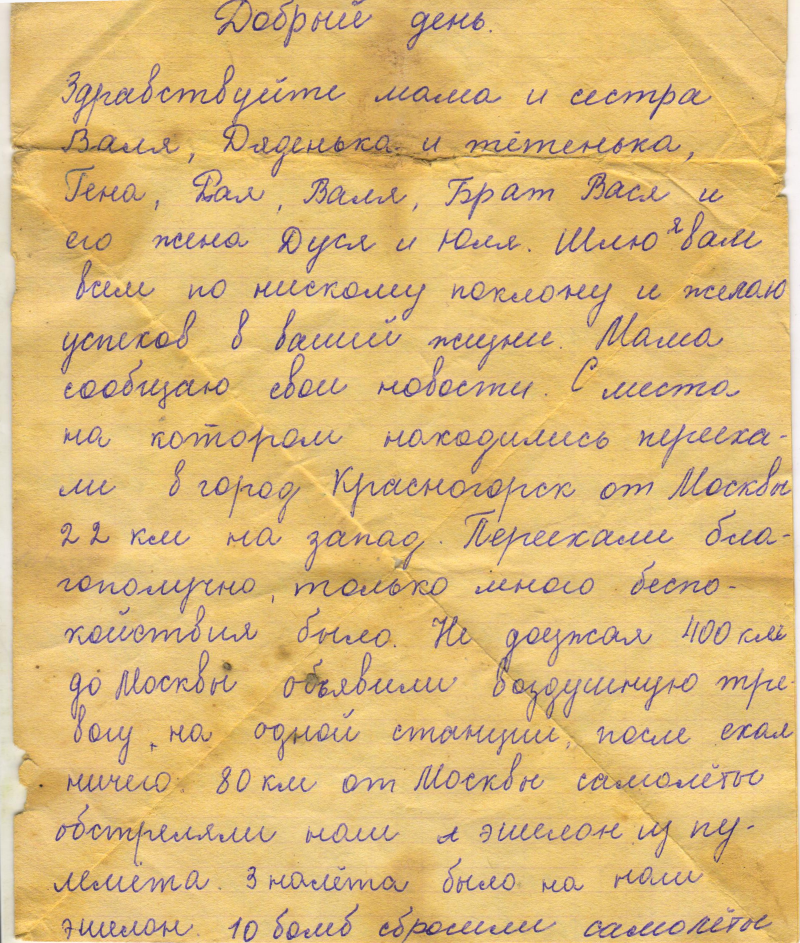 Добрый день.
Здравствуйте мама и сестра
Валя, Дяденька и тётенька,
Гена, Рая, Валя, Брат Вася и
его жена Дуся и Юля. Шлю я вам
всем по нискому поклону и желаю
успехов в вашей жизни. Мама
сообщаю свои новости. С места
на котором находились перееха-
ли в город Красногорск от Москвы
22 км на запад. Переехали бла-
гополучно, только много беспо-
койствия было. Не доезжая 400 км
до Москвы объявили воздушную тре-
вогу, на одной станции, после ехал
ничего. 80 км от Москвы самолёты
обстреляли наш эшелон из пу-
лемёта. 3 налёта было на наш
эшелон. 10 бомб сбросили самолёты